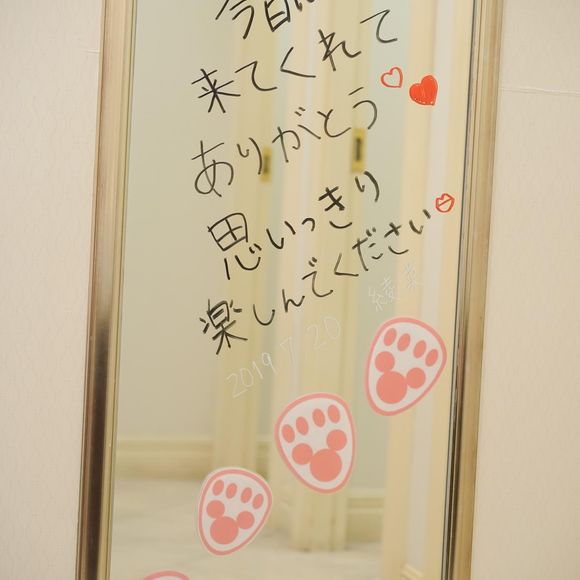 今日は
来てくれて
ありがとう
思いっきり
楽しんでください
2019 7 20 綾菜